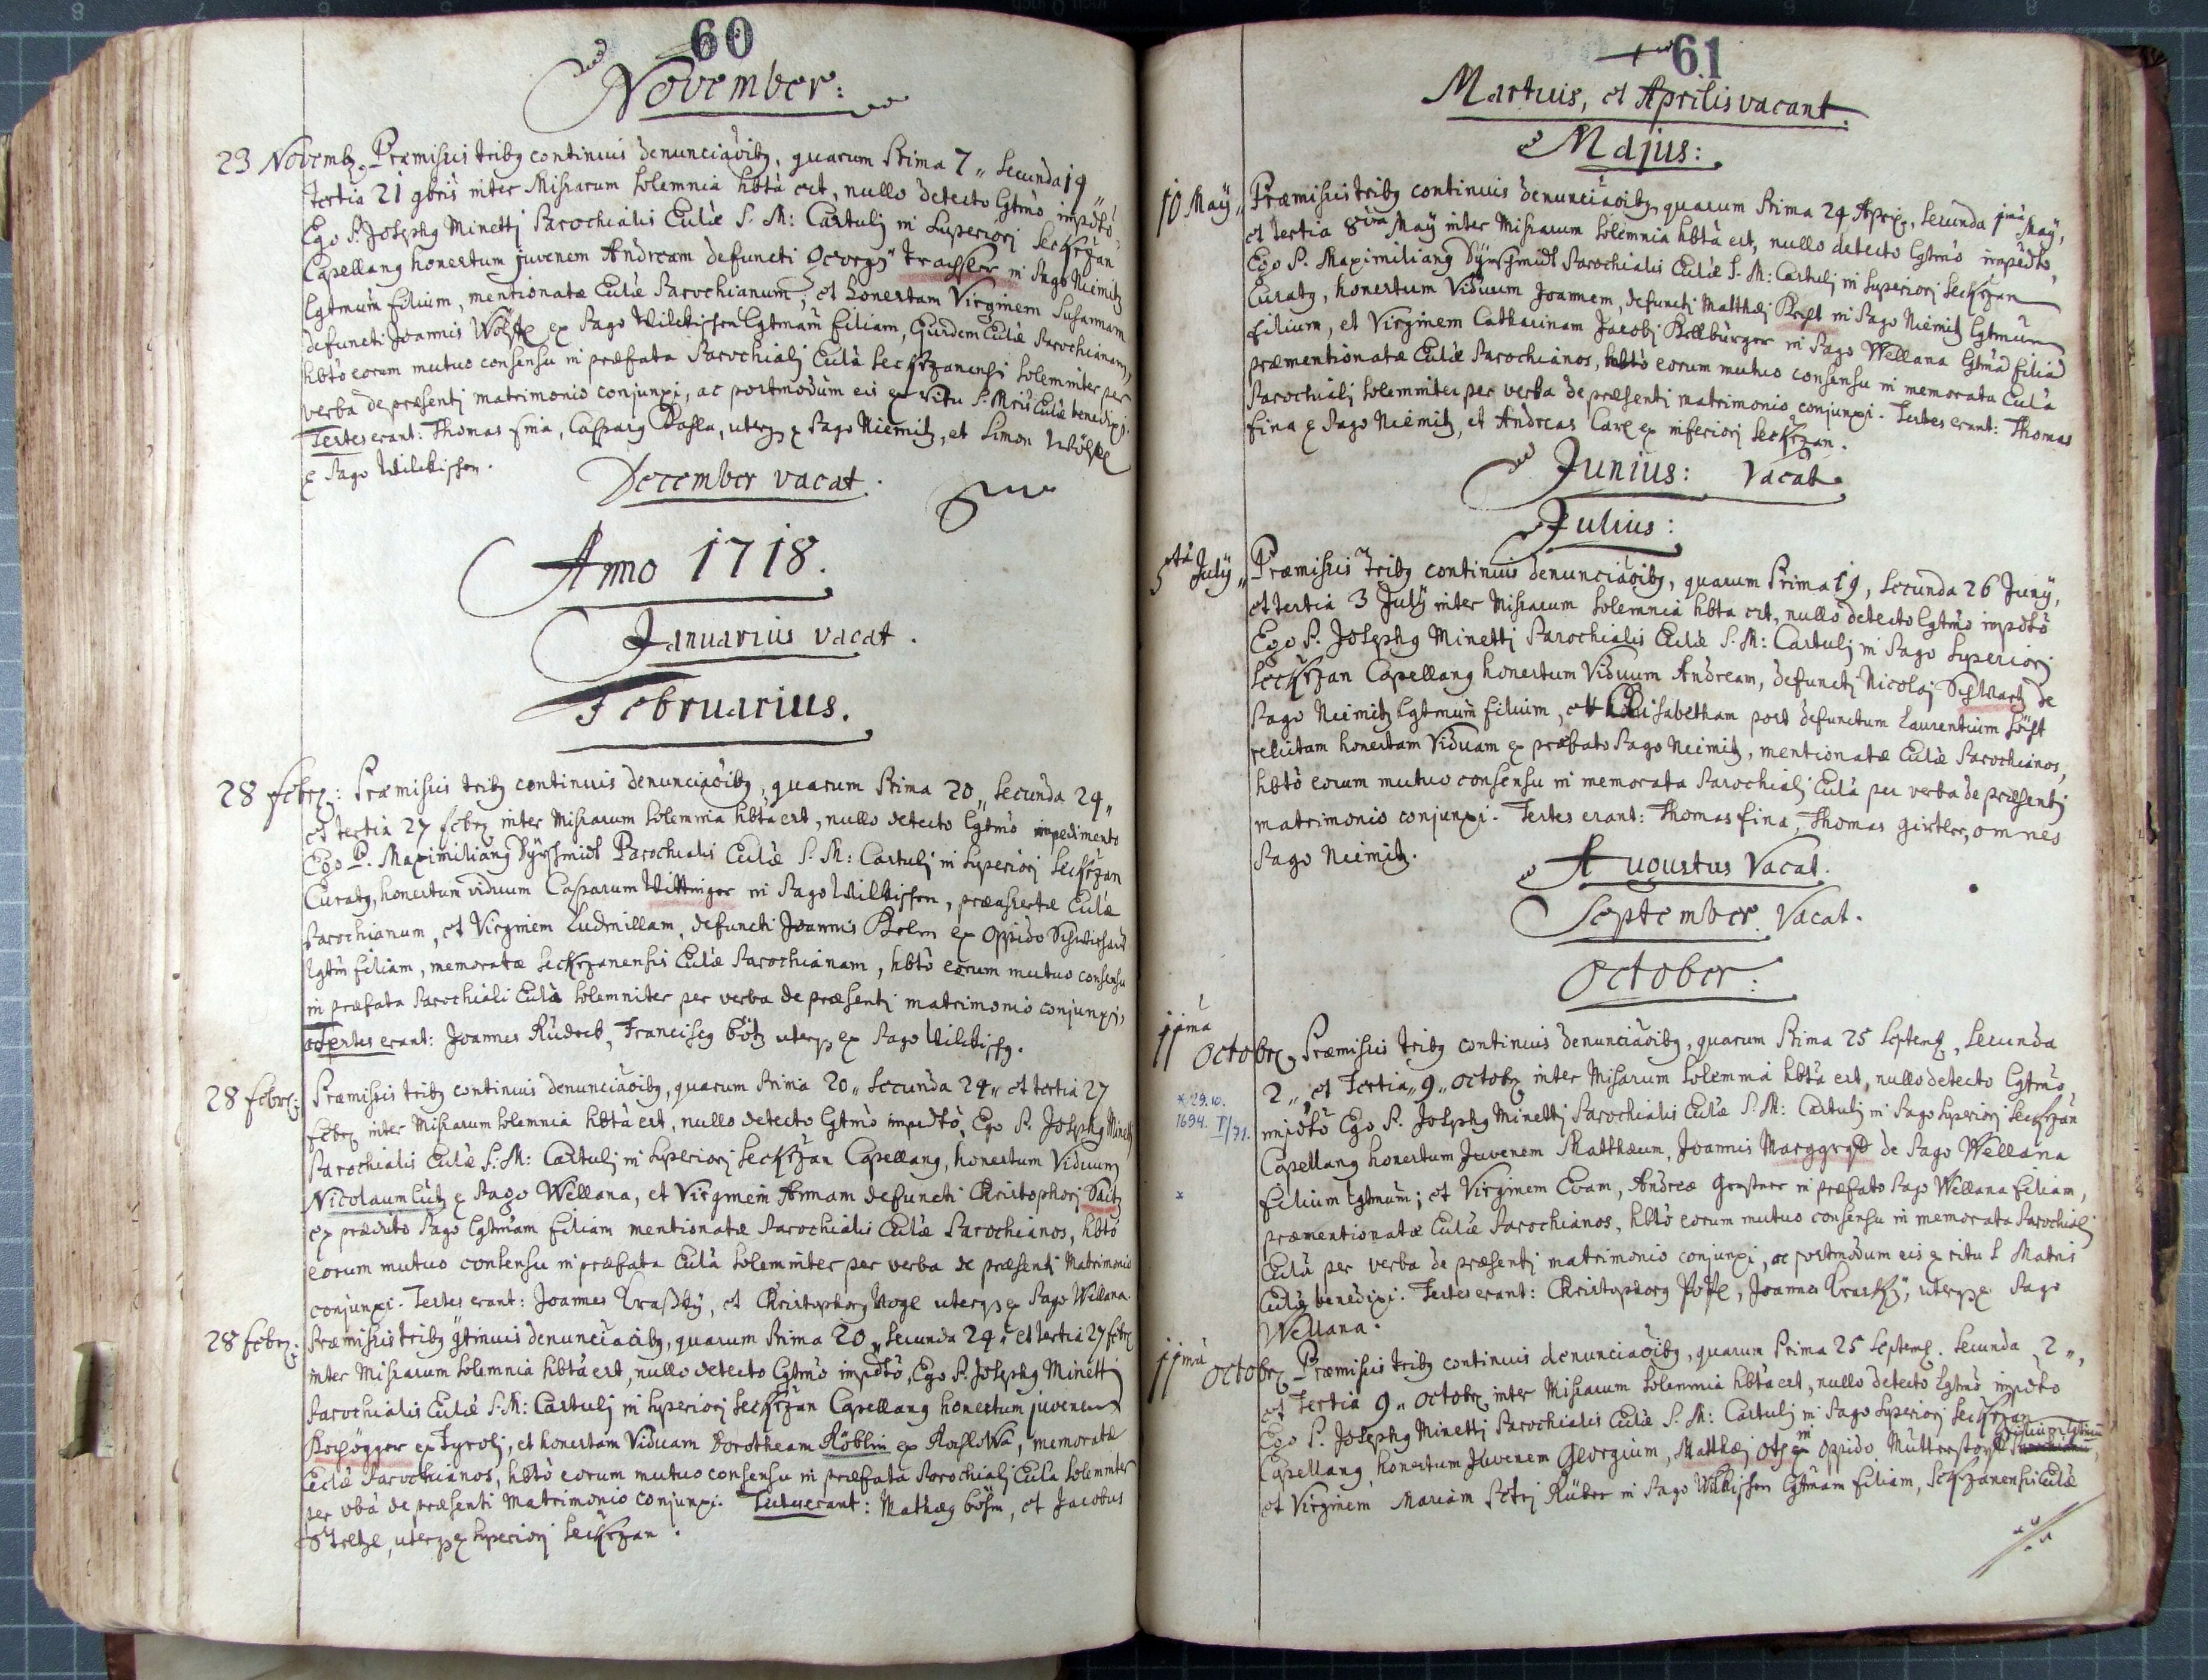 60
November:
23 Novemb. Præmissis tribg continuis denunciãoibg, quarum Prima 7 „ Secunda 19 „
tertia 21 9bris inter Missarum solemnia hbta est, nullo detecto lgtmo impdto
Ego P. Josephg Minettj Parochialis Eulæ S. M: Castulj in Superiorj Seckržan
Capellang honestum juvenem Andream defuncti Georgÿ Trassler in Pago Niemitz
lgtmum filium, mentionatæ Eulæ Parochianum, et honestam Virginem Susannam
defuncti Joannis ex Pago Wilckischen lgtmam filiam, Eulæ Parochianam,
hbto eorum mutuo consensu in præfata Parochialj Eula Seckrzanensi solemniter per
verba de præsentj matrimonio conjunxi, ac postmodum eis ex ritu S. Mris Eulæ benedixi.
Testes erant: Thomas fina, Casparg uterqз e Pago Niemitz, et Simon
e Pago Wilckischen.
December vacat.
Anno 1718.
Januarius vacat.
Februarius.
28 febr: Præmissis tribg continuis denunciaoibg, quarum Prima 20 „ Secunda 24 „
et tertia 27 febr inter Missarum solemnia hbta est, nullo detecto lgtmo impedimento
Ego P. Maximiliang Dÿrschmidt Parochialis Eulæ S. M: Castulj in Superiorj Seckržan
Curatg, honestum viduum Casparum Wittinger in Pago Wilckischen, Eulæ
Parochianum, et Virginem Ludmillam, defuncti Joannis ex Oppido
lgtm filiam, memoratæ Seckrzanensis Eulæ Parochianam, hbto eorum mutuo consensu
in præfata Parochiali Eula solemniter per verba de præsentj matrimonio conjunxi,
Testes erant: Joannes Franciscg uterqз ex Pago Wilckischg.
28 febr: Præmissis tribg continuis denunciaoibg, quarum Prima 20 „ Secunda 24 „ et tertia 27
febr inter Missarum solemnia hbta est, nullo detecto lgtmo impdto, Ego P. Josephg Minettj
Parochialis Eulæ S. M: Castulj in Superiorj Seckržan Capellang, honestum Viduum
Nicolaum Lutz e Pago Wellana, et Virginem Annam defuncti Christophorj
ex prædicto Pago lgtmam filiam mentionatæ Parochialis Eulæ Parochianos, hbto
eorum mutuo consensu in præfata Eula solemniter per verba de præsentj Matrimonio
conjunxi. Testes erant: Joannes et Christophorg Vogl uterqз ex Pago Wellana.
28 febr: Præmissis tribg gtinuis denunciaoibg, quarum Prima 20 „ Secunda 24 „ et tertia 27 febr
inter Missarum solemnia hbta est, nullo detecto lgtmo impdto, Ego P. Josephg Minettj
Parochialis Eulæ S. M: Castulj in Superiorj Seckržan Capellang honestum juvenem
ex Tyrolj, et honestam Viduam Dorotheam Röblin ex memoratæ
Eulæ Parochianos, hbto eorum mutuo consensu in præfata Parochialj Eula solemniter
per vba de præsenti Matrimonio conjunxi. Testes erant: Mathæg Böhm, et Jacobus
uterqз e Superiorj Seckržan.
61
Martius, et Aprilis vacant.
Majus:
10 Maÿ „ Præmissis tribg continuis denunciaoibg quarum Prima 24 Apri, Secunda 1ma Maÿ,
et tertia 8va Maÿ inter Missarum solemnia hbta est, nullo detecto lgtmo impedto,
Ego P. Maximiliang Dÿrschmidt Parochialis Eulæ S. M: Castulj in Superiorj Seckržan
Curatg, honestum Viduum Joannem, defunctj Matthæj in Pago Niemitz lgtmum
filium, et Virginem Catharinam Jacobj in Pago Wellana lgtma filia
præmentionatæ Eulæ Parochianos, hbto eorum mutuo consensu in memorata Eula
Parochialj solemniter per verba de præsentj matrimonio conjunxi. Testes erant: Thomas
fina e Pago Niemitz, et Andreas ex inferiorj Seckržan.
Junius: Vacat.
Julius:
5ta Julÿ „ Præmissis tribg continuis denunciaoibg, quarum Prima 19, Secunda 26 Junÿ,
et tertia 3 Julÿ inter Missarum solemnia hbta est, nullo detecto lgtmo impdto
Ego P. Josephg Minettj Parochialis Eulæ S. M: Castulj in Pago Superiorj
Seckržan Capellang honestum Viduum Andream, defunctj Nicolaj Schwartz de
Pago Niemitz lgtmum filium, et Elisabetham post defunctum Laurentium
relictam honestam Viduam ex præfato Pago Niemitz, mentionatæ Eulæ Parochianos,
hbto eorum mutuo consensu in memorata Parochialj Eula per verba de præsentj
matrimonio conjunxi. Testes erant: Thomas fina, Thomas girtler, omnes
Pago Niemitz.
Augustus Vacat.
September Vacat.
October:
11ma Octobr. Præmissis tribg continuis denunciaoibg, quarum Prima 25 Septemb, Secunda
2 „, et Tertia „ 9 „ octobr inter Missarum solemnia hbta est, nullo detecto lgtmo
* 29.10.
1694. I/71.
impdto Ego P. Josephg Minettj Parochialis Eulæ S. M: Castulj in Pago Superiorj Seckržan
Capellang honestum Juvenem Matthæum, Joannis Marggraff de Pago Wellana
*
filium lgtmum; et Virginem Evam, Andreæ in præfato Pago Wellana filiam,
præmentionatæ Eulæ Parochianos, hbto eorum mutuo consensu in memorata Parochialj
Eula per verba de præsentj matrimonio conjunxi, ac postmodum eis e ritu S Matris
Eulæ benedixi. Testes erant: Christophorg Joannes uterqз e Pago
Wellana.
11ma Octobr. Præmissis tribg continuis denunciaoibg, quarum Prima 25 Septemb. Secunda 2 „,
et Tertia 9 „ octobr inter Missarum solemnia hbta est, nullo detecto lgtmo impdto
Ego P. Josephg Minettj Parochialis Eulæ S. M: Castulj in Pago Superiorj Seckržan
Capellang honestum Juvenem Georgium, Matthæj Ott in oppido filium lgtmum
et Virginem Mariam Petrj in Pago Wilckischen lgtmam filiam, Seckrzanensis Eulæ